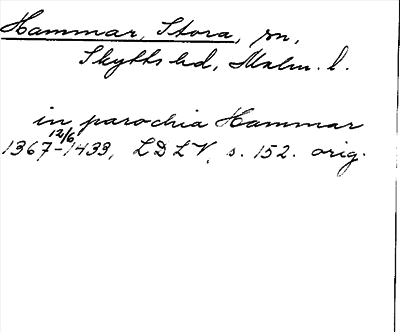 Hammar, Stora, sn,
Skytts hd, Malm. l.
in parochia Hammar
12/6
1367-1433, LDLV, s. 152. orig.